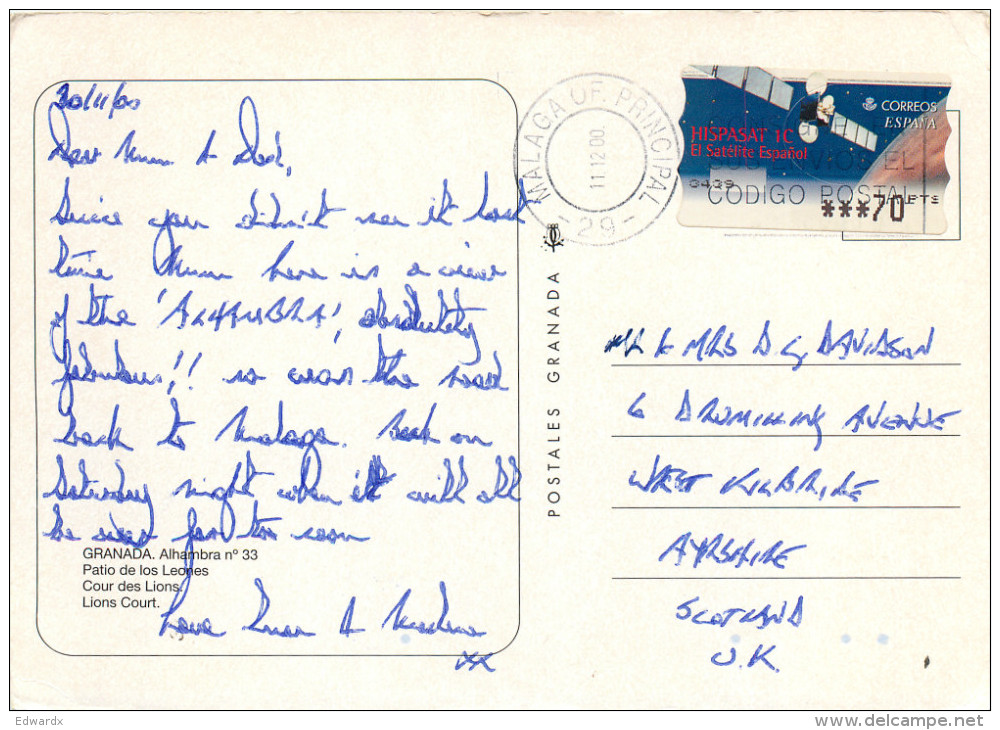 30/11/00
Dear Mum & Dad,
Since you didn't see it last
time Mum here is a view
of the 'ALHAMBRA', absolutely
fabulous!! so was the road
back to Malaga. Back on
Saturday night when it will all
be over far too soon
GRANADA. Alhambra nº 33
Patio de los Leones
Cour des Lions.
Lions Court.
Love &
xx
POSTALES GRANADA
MALAGA OF. PRINCIPAL
11.12 00.
- 29 -
CORREOS
ESPAÑA
HISPASAT 1C
El Satélite Español
EL
0439
CODIGO POSTAL
***70 PTS
MR & MRS D. G. DAVIDSON
6 DRUMILLING AVENUE
WEST KILBRIDE
AYRSHIRE
SCOTLAND
U.K.
Edwardx
delcampe.net